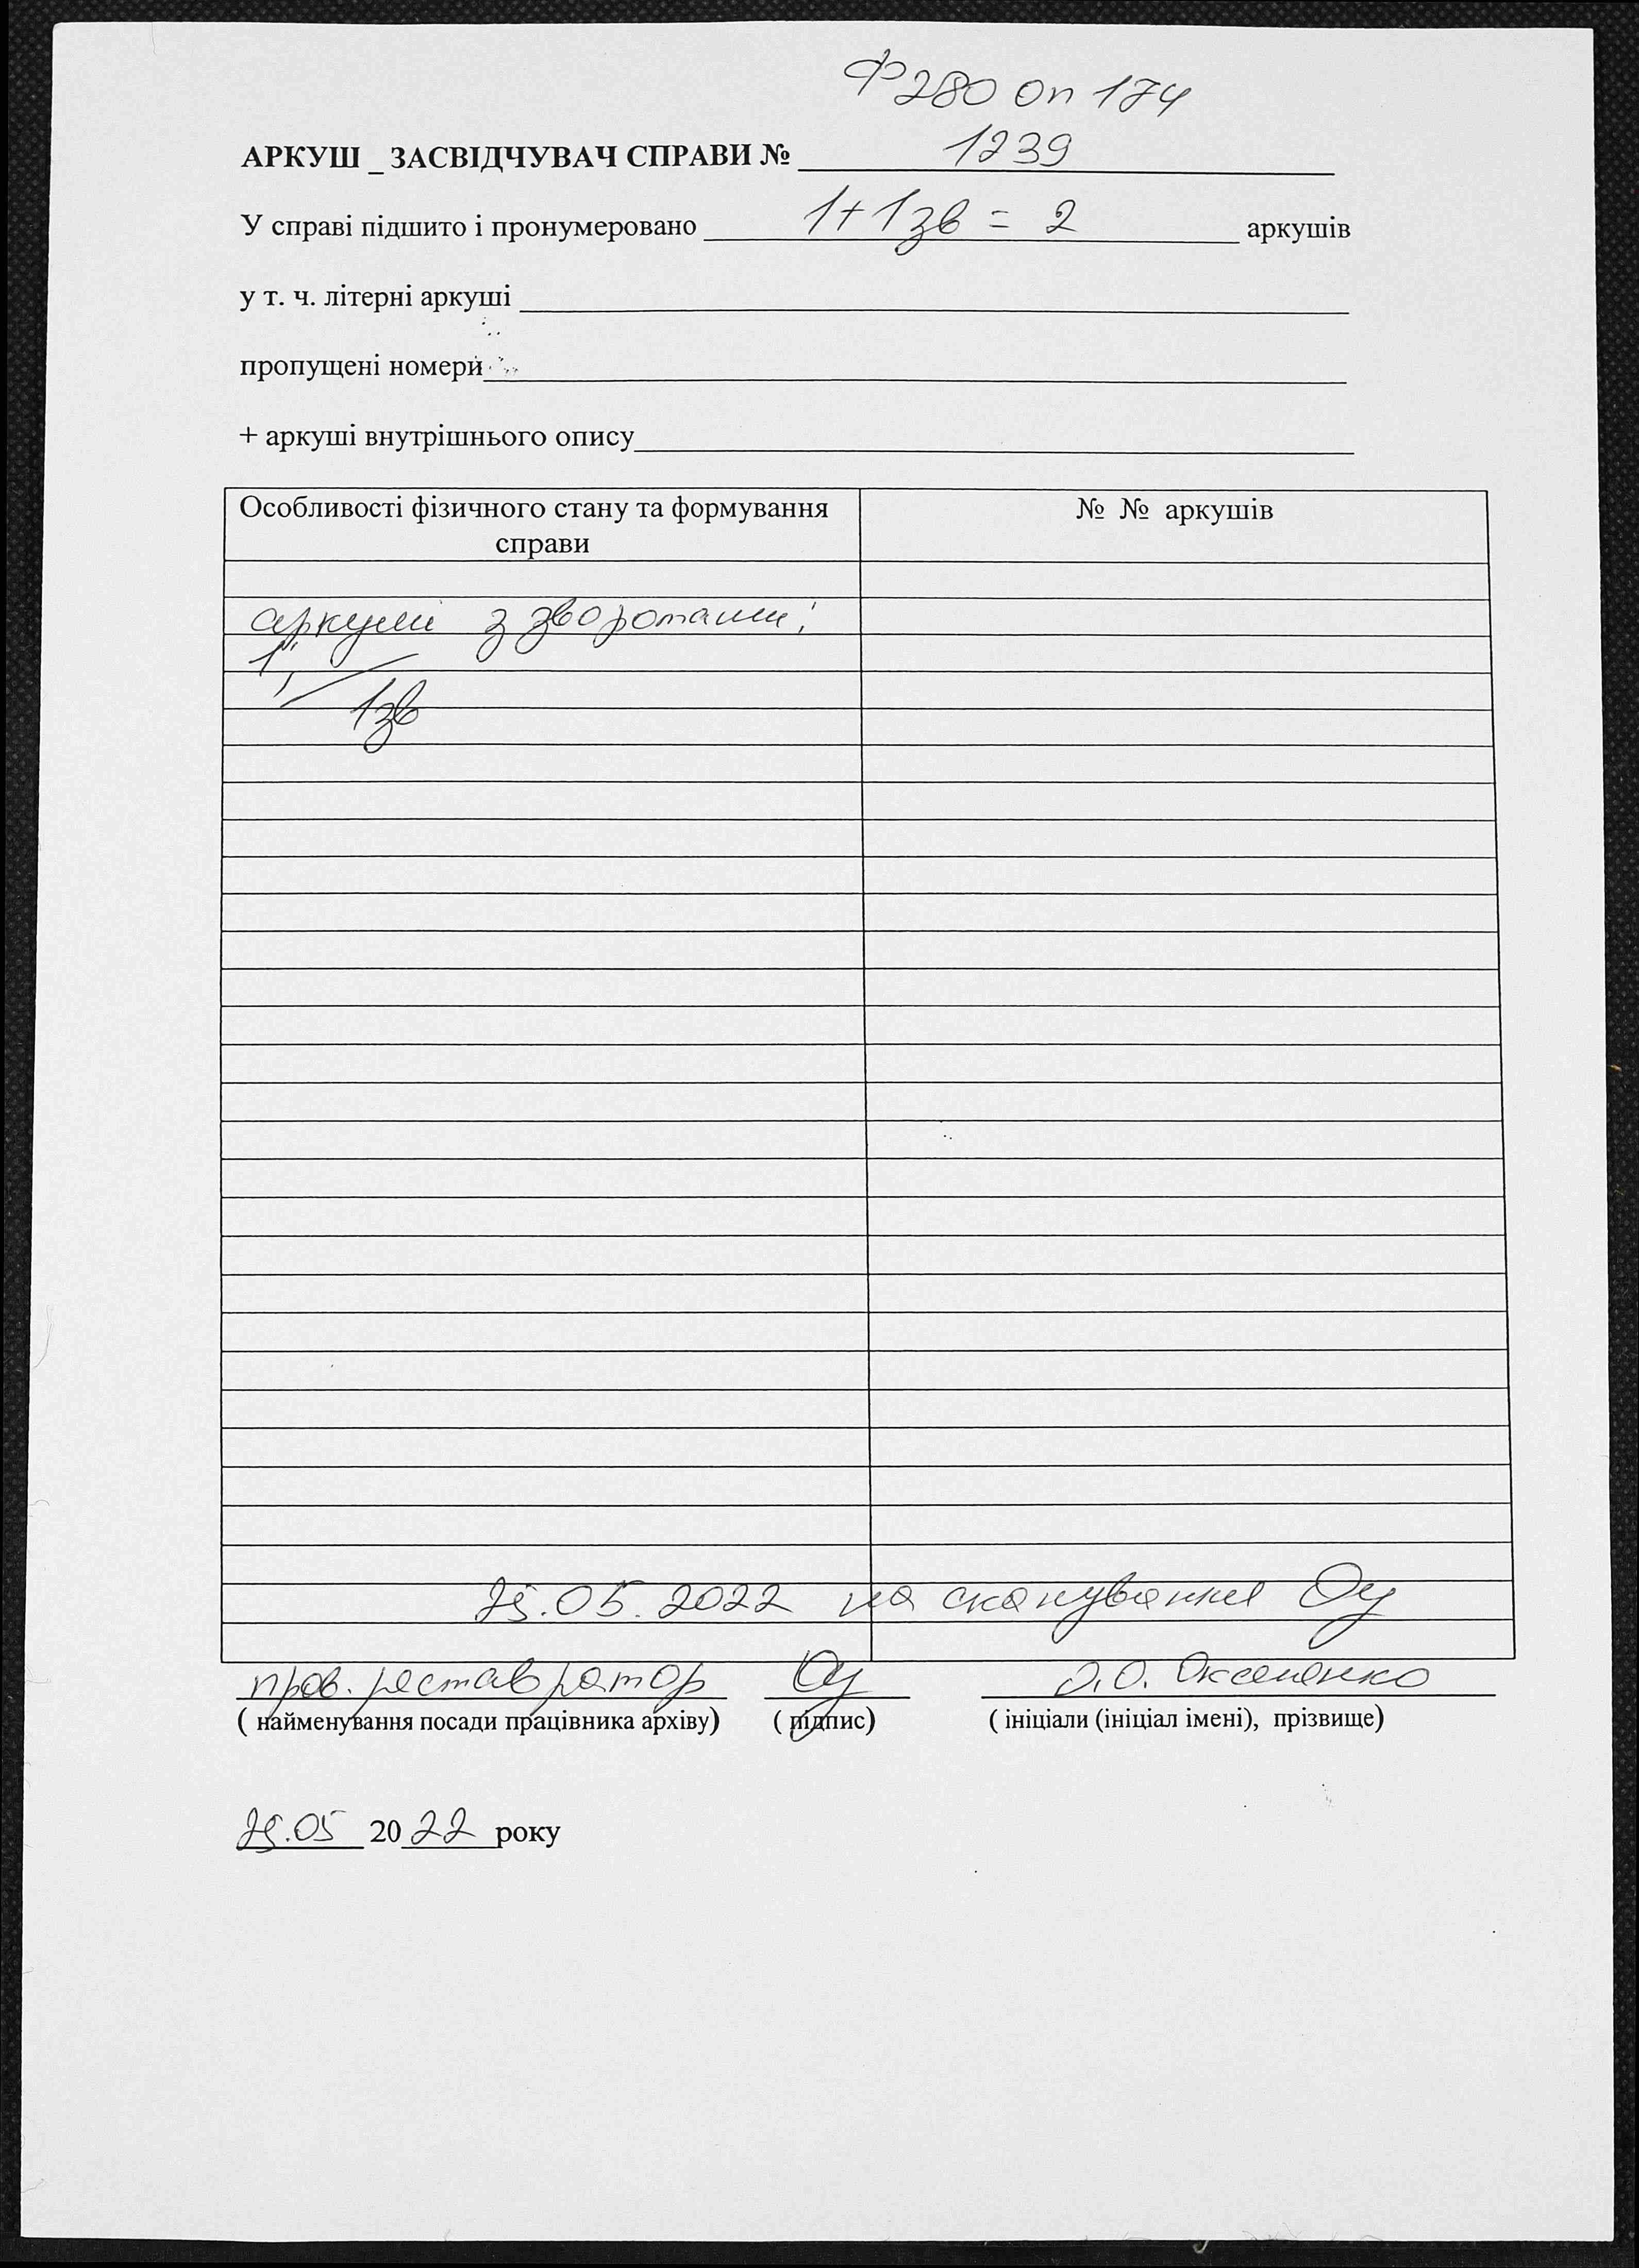 Ф 280 оп 174
АРКУШ _ ЗАСВІДЧУВАЧ СПРАВИ № 1239
У справі підшито і пронумеровано 1+1зв = 2 аркушів
у т. ч. літерні аркуші
пропущені номери
+ аркуші внутрішнього опису
Особливості фізичного стану та формування справи
№ № аркушів
аркуші з зворотами:
1,
1зв
25.05.2022 на сканування
пров. реставратор О.О. Оксененко
( найменування посади працівника архіву) ( підпис) ( ініціали (ініціал імені), прізвище)
25.05 2022 року